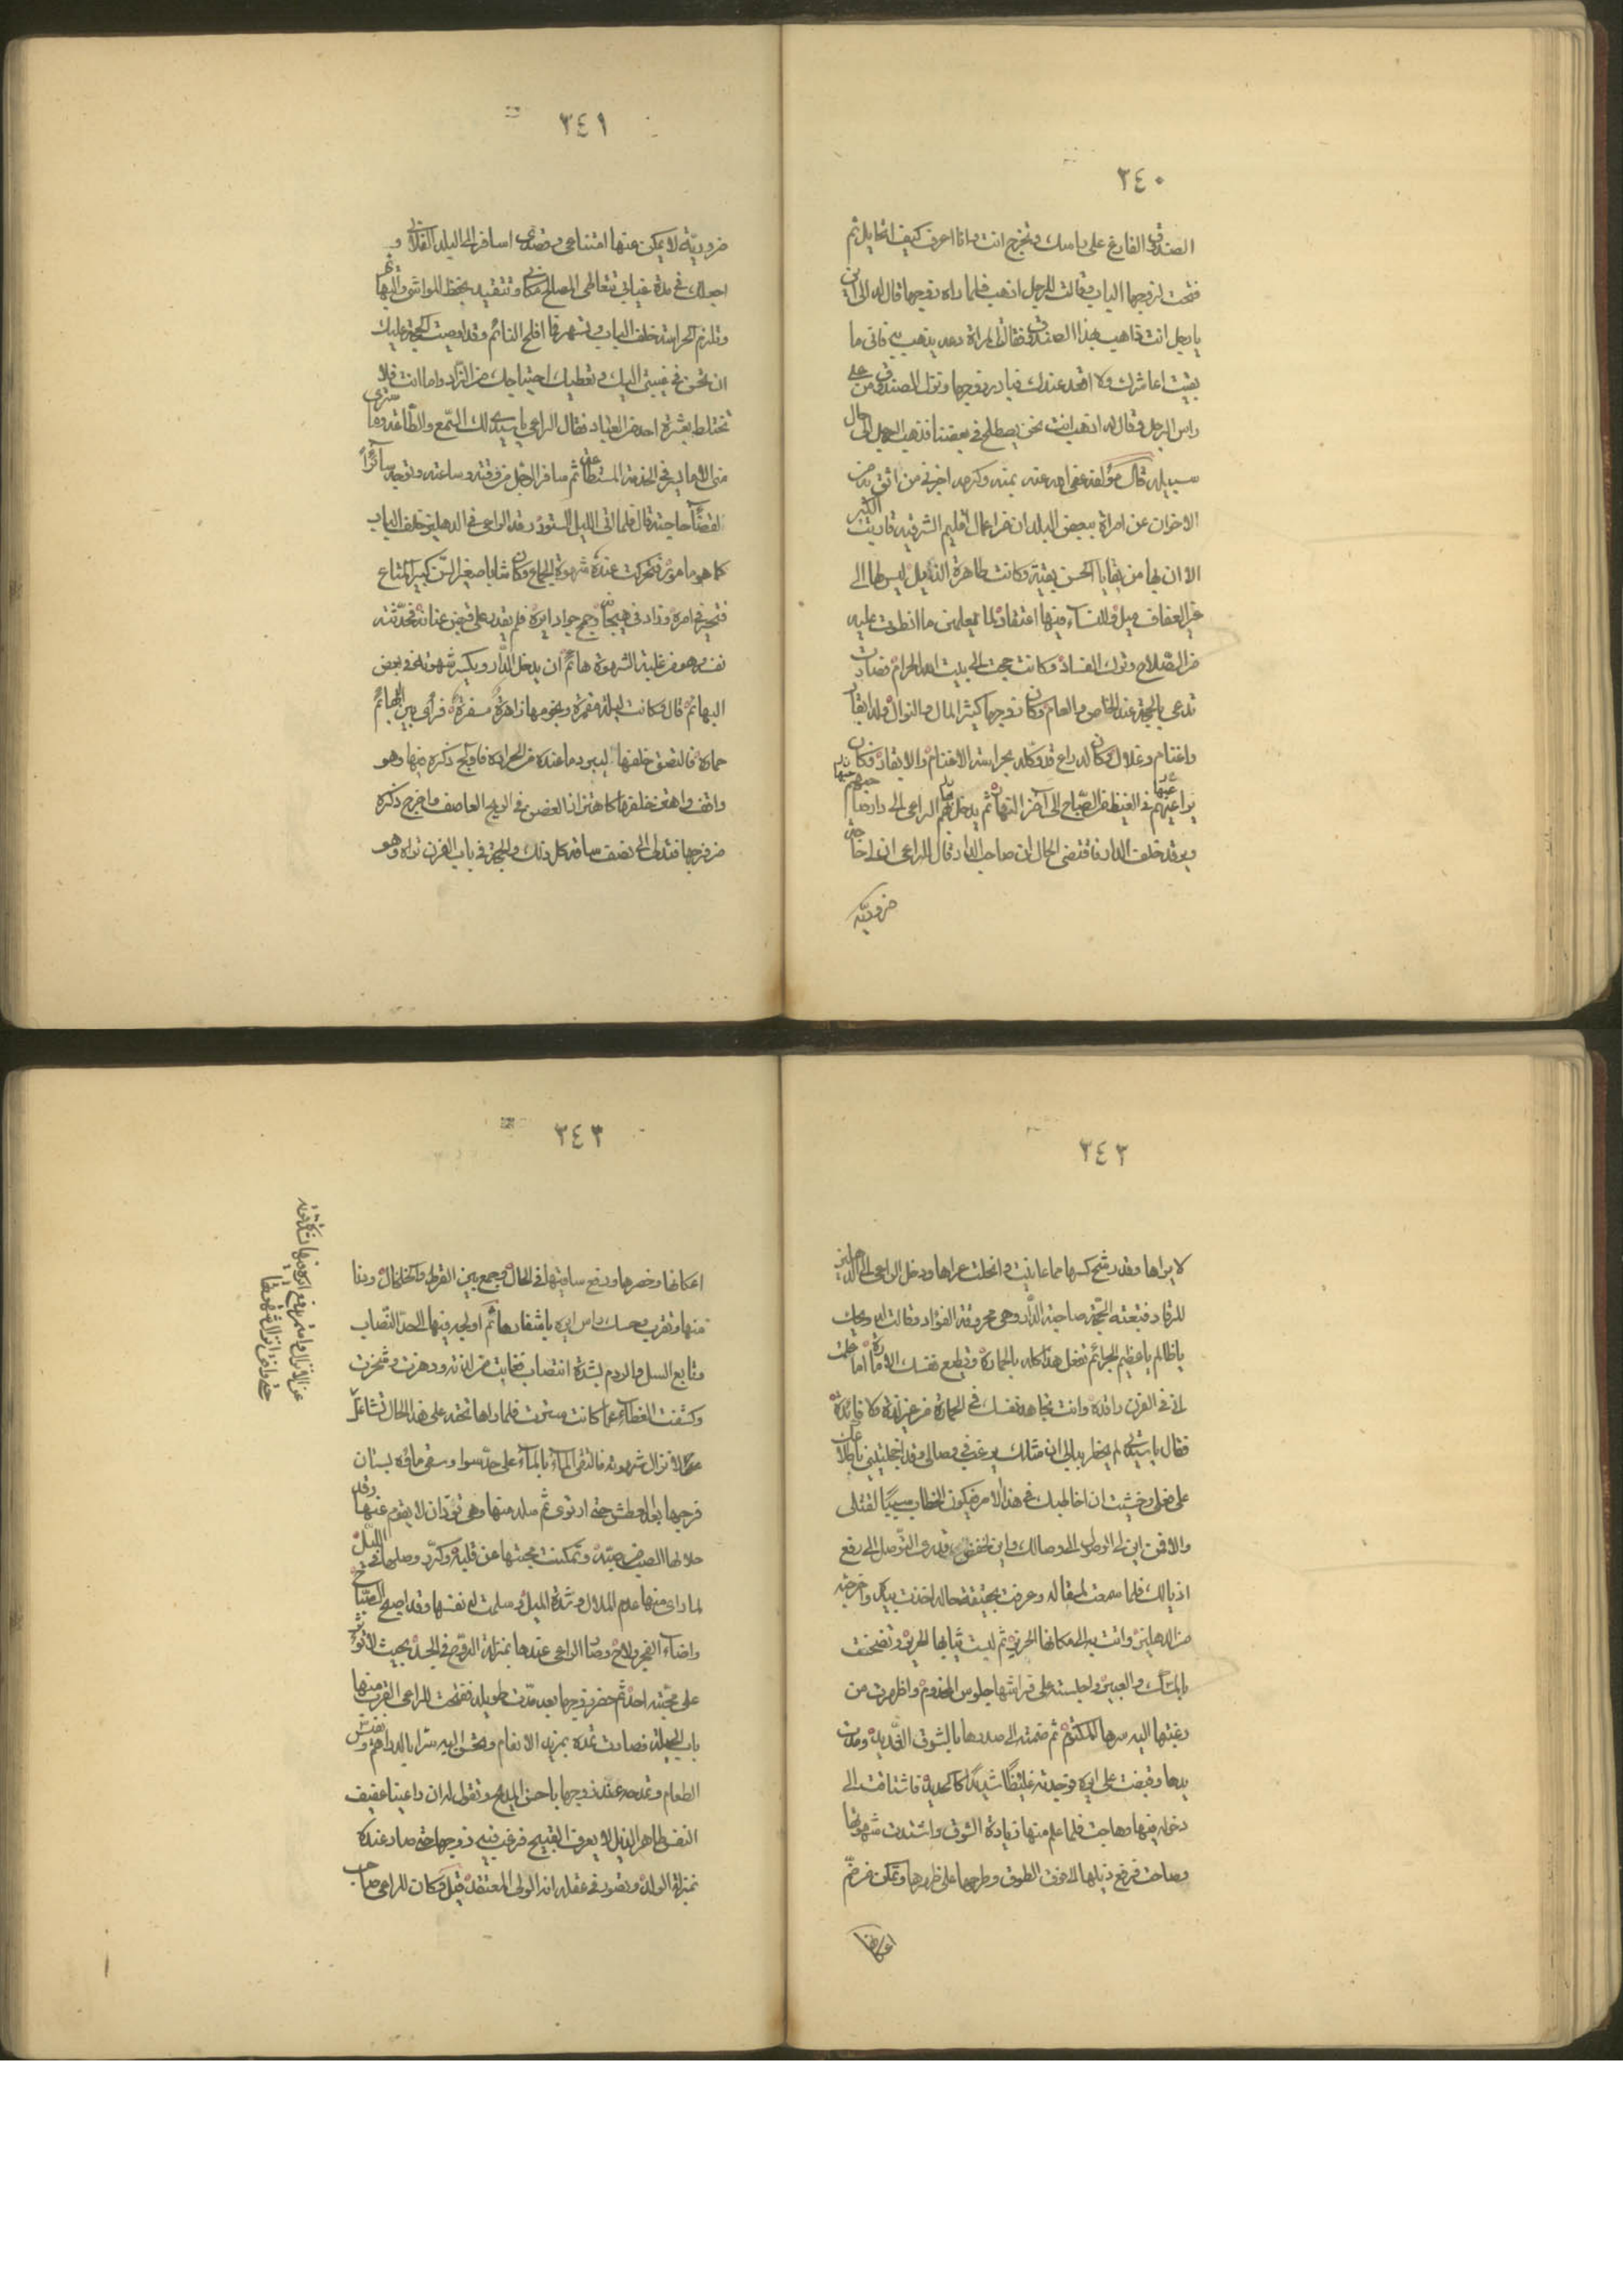 ٣٤٠
الصندوق الفارغ على راسك وتخرج انت وانا اعرف كيف اتحايل ثم
فتحت لزوجها الباب وقالت للرجل اذهب فلما راه زوجها قال له الى اين
يا رجل انت ذاهب بهذا الصندوق فقالت المراة دعه يذهب به فانى ما
بقيت اعاشرك ولا اقعد عندك فبادر زوجها ونزل الصندوق من على
راس الرجل وقال له اذهب انت نحن نصطلح فى بعضنا فذهب الرجل الى حال
سبيله قال مؤلفه عفى الله عنه بمنه وكرمه اخبرنى من اثق به من
الاخوان عن امراة ببعض البلدان من اعمال اقليم الشرقيه قاربت الكبر
الا ان لها من بقايا الحسن بقيّة وكانت طاهرة الذيل ليس لها الى
غير العفاف ميل وللنساء فيها اعتقاد لما يعلمن ما انطوت عليه
من الصّلاح وترك الفساد وكانت حجت الى بيت الله الحرام فصارت
تدعى بالحجة عند الخاص والعام وكان زوجها كثير المال والنوال وله ابقار
واغنام وغلال وكان له راع قد وكله بحراسة الاغنام والابقار وكان
يراعيهم فى الغيط من الصّباح الى آخر النهار ثم يدخل بهم الراعى الى دار
ويرقد خلف الدار فاقتضى الحال ان صاحب الدار قال للراعى ان لى حاجة
ضروريّه
٣٤١
ضروريّة لا يمكن عنها امتناعى وقصدى اسافر الى البلد الفلانى و
اجعلك فى مدة غيابى تتعاطى المصالح مكانى وتتقيد بحفظ المواشى والبهائم
وتلزم الحراسة خلف الباب وتسهر فما افلح النائم وقد اوصيت الحجة عليك
ان تحسن فى غيبتى اليك وتعطيك احتياجك من الزّاد واما انت فلا
تختلط بعشرة احد من العباد فقال الراعى يا سيدى لك السّمع والطّاعة وما سترى
منى الا ما يسر فى الخدمة المستطاعة ثم سافر الرجل من وقته وساعته وتوجه سائرًا
لقضاء حاجته قال فلما اتى الليل الستور رقد الراعى فى الدهليز خلف الباب
كما هو مامور فتحركت عنده شهوة الجماع وكان شابا صغير السّن كبير المتاع
فتحير فى امره وزاد فى هيجانه وجمح جواد ايره فلم يقدر على قبض عنانه فحدّثته
نفسه وهو من غلبة الشهوة هائم ان يدخل الدّار ويكسر شهوته فى بعض
البهائم قال وكانت ليلة مقمرة ونجومها زاهرة مسفرة فرأى بين البهائم
حمارة فالتصق خلفها ليبرد ما عنده من الحرارة فاولج ذكره فيها وهو
واقف واهتز خلفها كاهتزاز الغصن فى الريح العاصف واخرج ذكره
من فرجها فتدلى الى نصف ساقه كل ذلك والحجة فى باب الفرن تراه وهو
٣٤٢
لا يراها وقد رشح كسها مما عاينت وانحلت عراها ودخل الراعى الى الدهليز
للرقاد فتبعته الحجة صاحبة الدّار وهى محروقة الفؤاد وقالت له ويحك
يا ظالم يا عظيم الجرائم تفعل هذا كله بالحمارة وتطيع نفسك الامارة اما علمت
انى فى الفرن راقدة وانت تجاهد نفسك فى الحمارة من غير لذة ولا فائدة
فقال يا ستى لم يخطر ببالى ان مثلك يرغب فى وصالى وقد اخجلتينى
على فعلى وخشيت ان اخاطبك فى هذا الامر فيكون الخطاب سببًا لقتلى
والا فمن اين لى الوصول الى وصالك واين لخفض قدرى التوصل الى رفع
اذيالك فلما سمعت لمقاله وعرفت بحقيقة حاله اخذت بيده واخرجته
من الدهليز واتت به الى مكانها الحريز ثم لبست ثيابها الحرير وتضمخت
بالمسك والعبير واجلسته على فراشها جلوس المخدوم واظهرت من
رغبتها اليه سرها المكتوم ثم ضمته الى صدرها بالشوق الشّديد ومدت
يدها وقبضت على ايره فوجدته غليظًا شديدًا كالحديد فاشتاقت الى
دخوله فيها وهاجت فلما علم منها زيادة الشوق واشتدت شهوتها
وصاحت فرفع ذيلها الى فوق الطوق وطرحها على ظهرها وتمكن من ضمّ
اعكانها
٣٤٣
اعكانها وخصرها ورفع ساقيها فى الحال وجمع بين القرط والخلخال ودنا
منها وتقرب وحسك راس ايره باشفارها ثم اولجه فيها الى حدّ النّصاب
وتابع السل والردم بشدة انتصاب فغابت من لذته ورهزت وشخرت
وكشفت الغطاء عما كانت سترت فلما راها تحته على هذا الحال تشاغل
عن الانزال شهوته فالتقى الماء بالماء على حدّ سوا وسقى ماؤه بستان
فرجها بعد العطش حتى ارتوى ثم سله منها وهى تودّ ان لا يقوم عنها وقد
حلا لها الصيف وتمكنت محبتها من قلبه وكرّر وصلها فى الليل
لما راى منها عدم الملال وشدة الميل وسلمت له نفسها وقد اصبح الصّباح
واضاء الفجر ولاح وصار الراعى عندها بمنزلة الروح فى الجسد بحيث لا تؤثر
على محبّته احد ثم حضر زوجها بعد مدّة طويلة ففتحت للراعى القرب منها
باب الحيلة فصارت تمده بمزيد الانعام وتحسن اليه سرًا بالدراهم ونفيس
الطعام وتمدحه عند زوجها باحسن المديح وتقول له ان راعينا عفيف
النفس طاهر الذيل لا يعرف القبيح فرغب فيه زوجها حتى صار عنده
بمنزلة الولد وتصور فى عقله انه الولى المعتقد قيل وكان للراعى صاحب